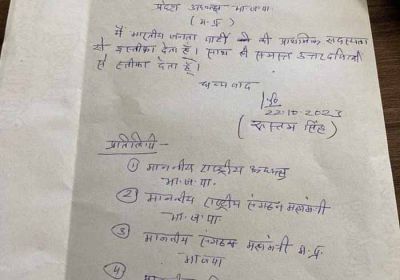 प्रदेश अध्यक्ष भा.ज.पा.
(म.प्र)
मैं भारतीय जनता पार्टी की प्राथमिक सदस्यता
से इस्तीफा देता हूँ। साथ ही समस्त उत्तरदायित्वों
से इस्तीफा देता हूँ।
धन्यवाद
22.10.2023
(रुस्तम सिंह)
प्रतिलिपी:-
① माननीय राष्ट्रीय अध्यक्ष
भा.ज.पा.
② माननीय राष्ट्रीय संगठन महामंत्री
भा.ज.पा.
③ माननीय संगठन महामंत्री म.प्र.
भाजपा
④